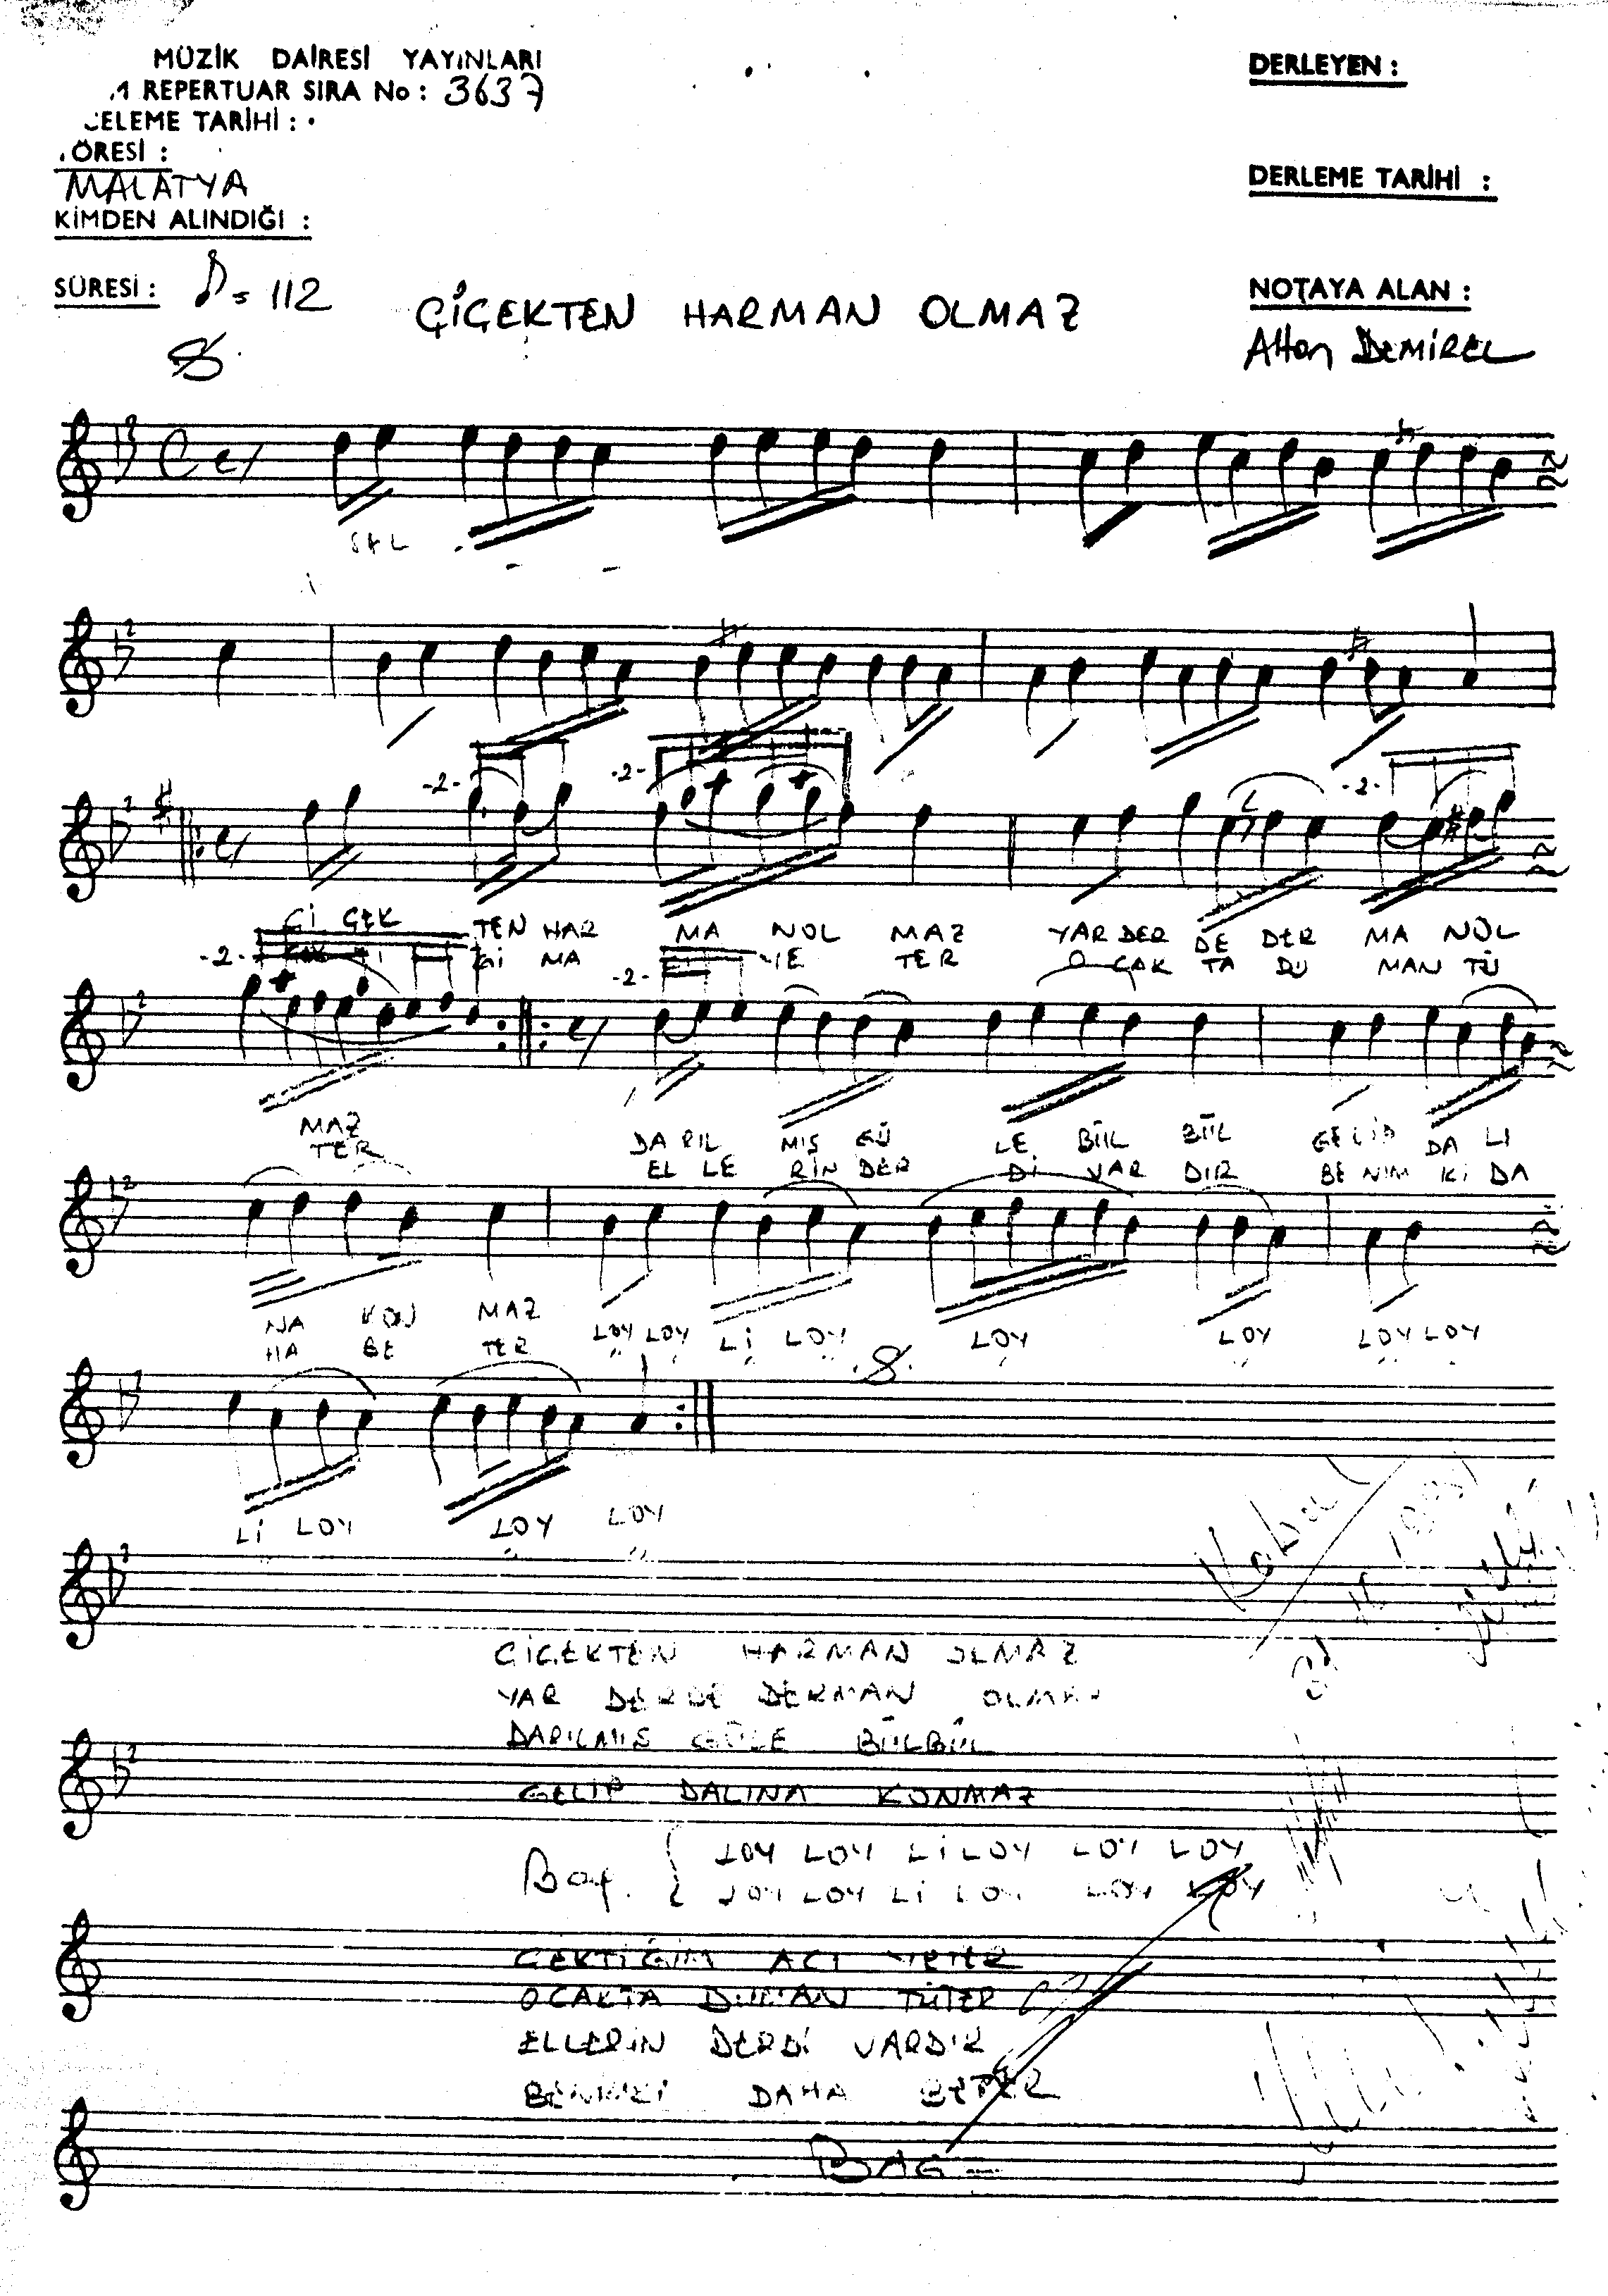 MÜZİK DAİRESİ YAYINLARI
REPERTUAR SIRA No : 3637
ELEME TARİHİ :
ÖRESİ :
MALATYA
KİMDEN ALINDIĞI :
SÜRESİ : ♪= 112
DERLEYEN :
DERLEME TARİHİ :
NOTAYA ALAN :
DEMİREL
ÇİÇEKTEN HARMAN OLMAZ
-2- -2- -2-
Çİ ÇEK TEN HAR MA NOL MAZ YAR DER DE DER MA NOL
-2- Gİ MA YE TER O CAK TA DU MAN TÜ
-2-
MAZ DARIL MIŞ GÜ LE BÜL BÜL GELİP DA LI
TER EL LE RİN DER Dİ VAR DIR BE NİM Kİ DA
NA KON MAZ LOY LOY Lİ LOY LOY LOY LOY LOY
HA BE TER
Lİ LOY LOY LOY
Kabul
ÇİÇEKTEN HARMAN OLMAZ
YAR DERDE DERMAN OLMAZ
DARILMIŞ GÜLE BÜLBÜL
GELİP DALINA KONMAZ
Bağ. { LOY LOY Lİ LOY LOY LOY
LOY LOY Lİ LOY LOY LOY
ÇEKTİĞİM ACI YETER
OCAKTA DUMAN TÜTER
ELLERİN DERDİ VARDIR
BENİMKİ DAHA BETER
BAĞ